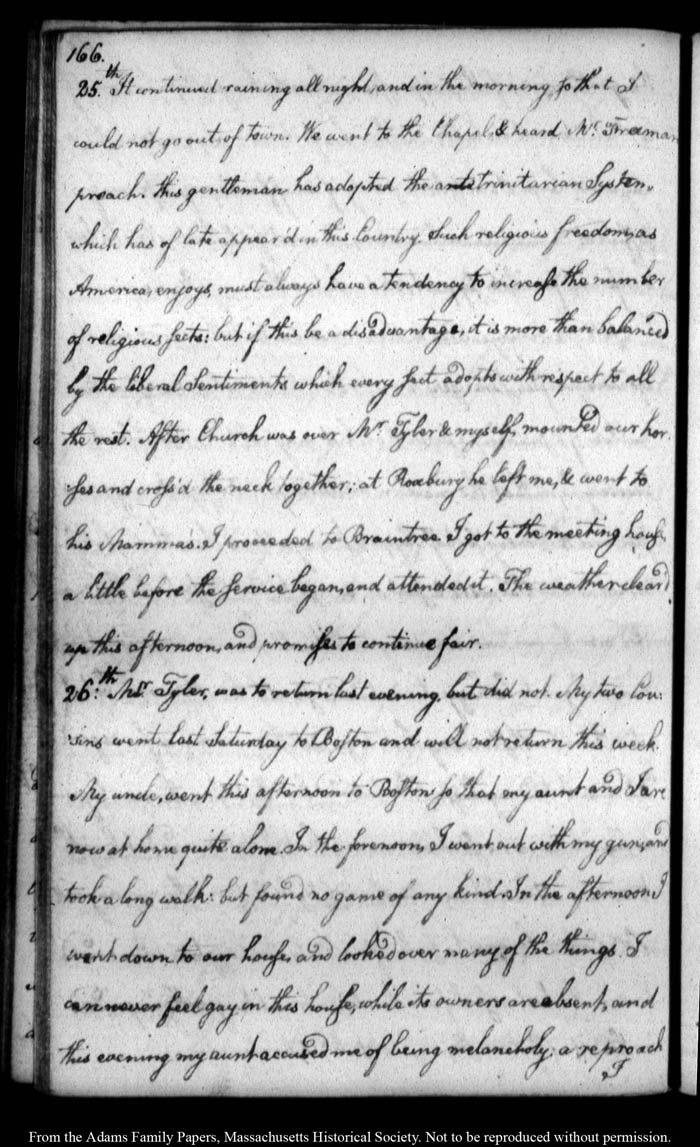 166.
25.th It continued raining all night, and in the morning, so that I
could not go out of town. We went to the Chapel, & heard Mr. Freeman
preach. this gentleman has adopted the antitrinitarian System,
which has of late appear'd in this Country. Such religious freedom, as
America, enjoys, must always have a tendency to increase the number
of religious sects: but if this be a disadvantage, it is more than balanced
by the liberal Sentiments which every sect adopts with respect to all
the rest. After Church was over Mr. Tyler & myself, mounted our hor
:ses and cross'd the neck together; at Roxbury he left me, & went to
his Mamma's. I proceeded to Braintree. I got to the meeting house,
a little before the service began, and attended it. The weather clear'd
up this afternoon, and promises to continue fair.
26.th Mr. Tyler, was to return last evening, but did not. My two Cou:
:sins went last Saturday to Boston and will not return this week.
My uncle, went this afternoon to Boston so that my aunt and I are
now at home quite alone. In the forenoon, I went out with my gun, and
took a long walk: but found no game of any kind. In the afternoon I
went down to our house, and looked over many of the things. I
can never feel gay in this house, while its owners are absent, and
this evening my aunt accused me of being melancholy; a reproach
I
From the Adams Family Papers, Massachusetts Historical Society. Not to be reproduced without permission.